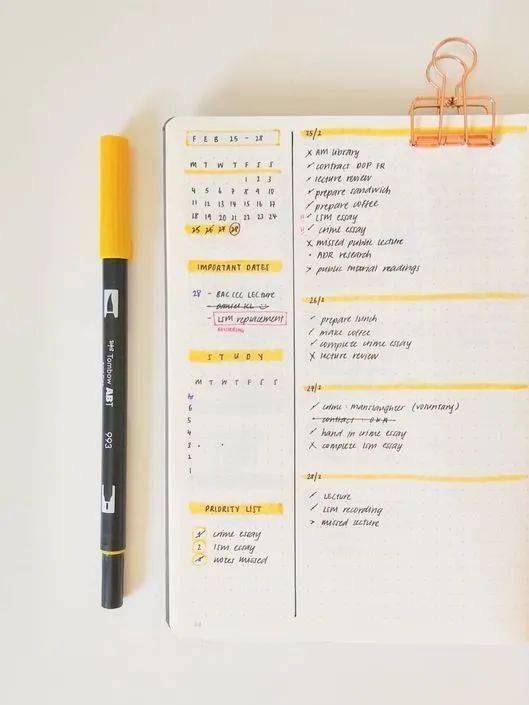 Tombow ABT
993
FEB 25 - 28
M T W T F S S
1 2 3
4 5 6 7 8 9 10
11 12 13 14 15 16 17
18 19 20 21 22 23 24
25 26 27 28
IMPORTANT DATES
28 - BAC LLC LECTURE
- LSM replacement
STUDY
M T W T F S S
6
5
4
3
2
1
PRIORITY LIST
1 crime essay
2 lsm essay
3 notes missed
25/2
x AM library
✓ contract DOP FR
✓ lecture review
✓ prepare sandwich
✓ prepare coffee
✓ LSM essay
✓ crime essay
x missed public lecture
• ADR research
> public tutorial readings
26/2
✓ prepare lunch
✓ make coffee
✓ complete crime essay
x lecture review
27/2
✓ crime - manslaughter (voluntary)
✓ hand in crime essay
x complete lsm essay
28/2
✓ LECTURE
✓ LSM recording
> missed lecture